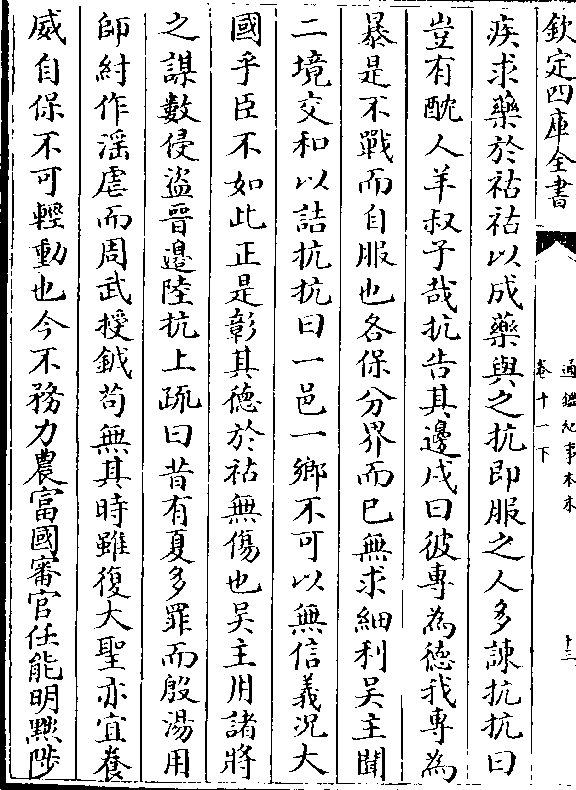 欽定四庫全書
通鑑紀事本末
卷十一下
十三
疾求藥於祜祜以成藥與之抗即服之人多諫抗抗曰
豈有酖人羊叔子哉抗告其邊戍曰彼專為德我專為
暴是不戰而自服也各保分界而已無求細利吴主聞
二境交和以詰抗抗曰一邑一鄉不可以無信義況大
國乎臣不如此正是彰其德於祜無傷也吴主用諸將
之謀數侵盜晉邊陸抗上疏曰昔有夏多罪而殷湯用
師紂作滛虐而周武授鉞苟無其時雖復大聖亦宜養
威自保不可輕動也今不務力農富國審官任能明黜陟